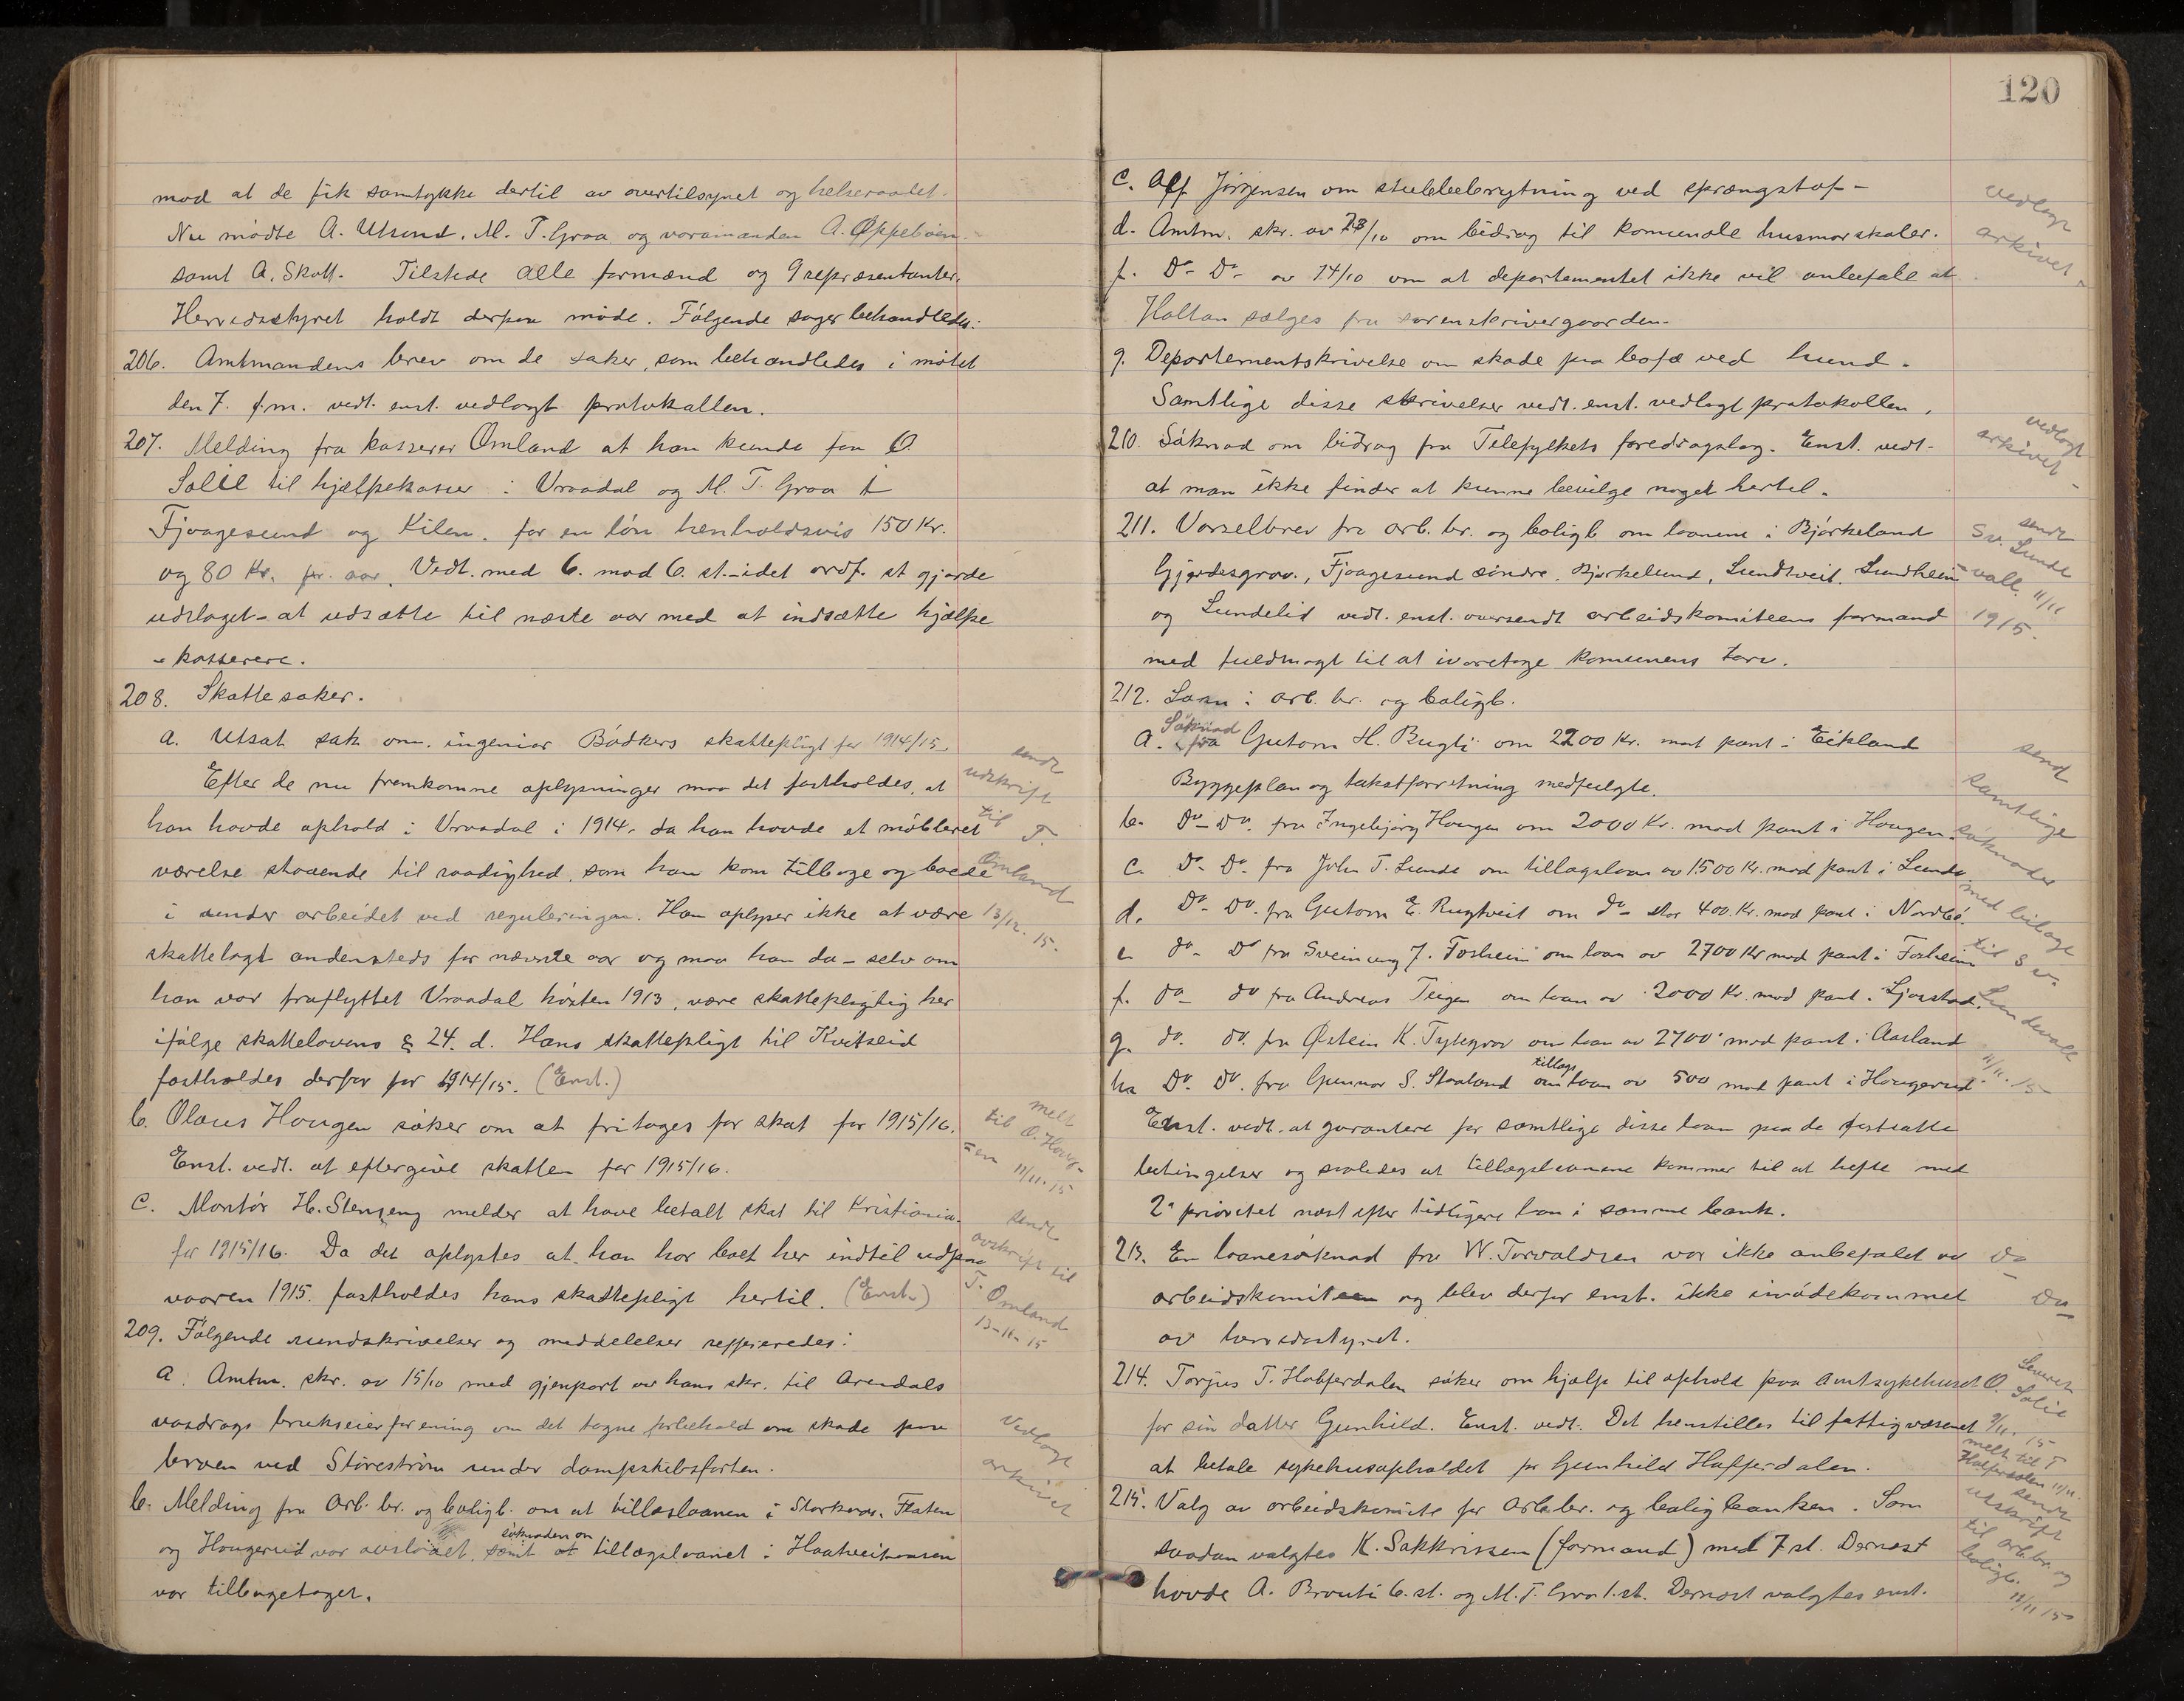 mod at de fik samtykke dertil av overtilsynet og helseraadet.
Nu mødte A. Utsund. M. T. Graa og varamanden A. Øppeböen.
samt A. Skott. Tilstede alle formænd og 9 repræsentanter.
Herredsstyret holdt derpaa møde. Følgende sager behandledes:
206. Amtmandens brev om de saker, som behandledes i møtet
den 7. f.m. vedt. enst. vedlagt protokollen.
207. Melding fra kasserer Omland at han kunde faa O.
Solli til hjælpekasser i Vraadal og M. T. Graa i
Fjaagesund og Kilen. for en løn henholdsvis 150 Kr.
og 80 Kr. pr. aar. Vedt. med 6. mod 6. st. idet ordf. st gjorde
udslaget - at udsætte til næste aar med at indsætte hjælpe
- kasserere.
208. Skattesaker.
a. Utsat sak om. ingeniør Bødkers skattepligt for 1914/15.
Efter de nu fremkomne oplysninger maa det fastholdes, at
han havde ophold i Vraadal i 1914, da han havde et møbleret
værelse staaende til raadighed, som han kom tilbage og boede
i under arbeidet ved reguleringen. Han oplyser ikke at være
skattelagt andensteds for nævnte aar og maa han da - selv om
han var fraflyttet Vraadal høsten 1913, være skattepligtig her
ifølge skattelovens § 24. d. Hans skattepligt til Kvitseid
fastholdes derfor for 1914/15. (Enst.)
sendt
udskrift
til T.
Omland
13/12. 15.
b. Olaus Haugen søker om at fritages for skat for 1915/16.
Enst. vedt. at eftergive skatten for 1915/16.
melt
til O. Haug-
-en 11/11. 15
c. Montør H. Stenseng melder at have betalt skat til Kristiania
for 1915/16. Da det oplystes at han har boet her indtil udpaa
vaaren 1915. fastholdes hans skattepligt hertil. (Enst.)
sendt
avskrift til
T. Omland
13-11-15
209. Følgende rundskrivelser og meddelelser reffereredes:
a. Amtm. skr. av 15/10 med gjenpart av hans skr. til Arendals
vasdrags brukseierforening om det tagne forbehold om skade paa
broen ved Storestrøm under dampskibsfarten.
Vedlagt
arkivet
b. Melding fra Arb. br. og boligb. om at tillægslaanen i Flaten
og Haugerud var avslaaet, samt at søknaden om tillægslaanet i
var tilbagetaget.
120
c. Alf Jørgensen om stubbebrytning ved sprængstof -
d. Amtm. skr. av 28/10 om bidrag til komunale husmorskoler.
f. Do - Do - av 14/10 om at departementet ikke vil anbefale at
Holtan sælges fra sorenskrivergaarden.
g. Departementskrivelse om skade paa bofæ ved hund.
Samtlige disse skrivelser vedt. enst. vedlagt protokollen.
vedlagt
arkivet
210. Søknad om bidrag fra Telefylkets foredragslag. Enst. vedt.
at man ikke finder at kunne bevilge noget hertil.
vedlagt
arkivet -
211. Varselbrev fra arb. br. og boligb om laanene i Bjørkeland
Gjærdesgrav., Fjaagesund søndre, Bjørkelund, Lundtveit, Lundheim
og Lundelid vedt. enst. oversendt arbeidskomiteens formand
med fuldmagt til at ivaretage komunens tarv.
sendt
Sv. Lunde
-vall. 11/11
1915.
212. Laan i arb. br. og boligb.
a. Søknad fra Gutorm H. Bugti om 2200 Kr. mot pant i Eikland
Byggeplan og takstforretning medfulgte.
b. Do - Do. fra Ingebjørg Haugen om 2000 Kr. mod pant i Haugen.
c. Do - Do. fra John T. Lunde om tillagslaan av 1500 Kr. mod pant i Lunde
d. Do - Do. fra Gutorm E. Rugtveit om do - stor 400. Kr. mod pant i Nordbø.
e. do - Do fra Sveinung J. Forheim om laan av 2700 Kr mod pant i Forheim
f. do - do fra Andreas Teigen om laan av 2000 Kr. mod pant i Ljosstad.
g. do. do. fra Østein K. Tytegrav om laan av 2700 mod pant i Aasland
h. Do. Do. fra Gunnar S. Staaland om tillags laan av 500 mod pant i Haugerud.
Enst. vedt. at garantere for samtlige disse laan paa de fastsatte
betingelser og saaledes at tillægslaanene kommer til at hefte med
2. prioritet næst efter tidligere laan i samme bank.
send
samtlige
søknader
med bilage
til Sv.
Lundevall
11/11. 15
213. En laanesøknad fra W. Torvaldsen var ikke anbefalet av
arbeidskomiteen og blev derfor enst. ikke imødekommet
av herredsstyret.
Do
Do
214. Torjus T. Hafferdalen søker om hjælp til ophold paa Amtsykehuset
for sin datter Gunhild. Enst. vedt. Det henstilles til fattigvæsenet
at betale sykehusopholdet for Gunhild Hafferdalen.
Leveret
O. Solli
9/11. 15
melt til T
Hafferdalen 11/11.
215. Valg av arbeidskomite for Arb. br. og boligbanken. Som
saadan valgtes K. Sakkrissen (formand) med 7 st. Dernæst
havde A. Brauti 6. st. og M. T. Graa 1. st. Dernæst valgtes enst.
sendt
utskrift
til arb. br. og
boligb.
11/11 15